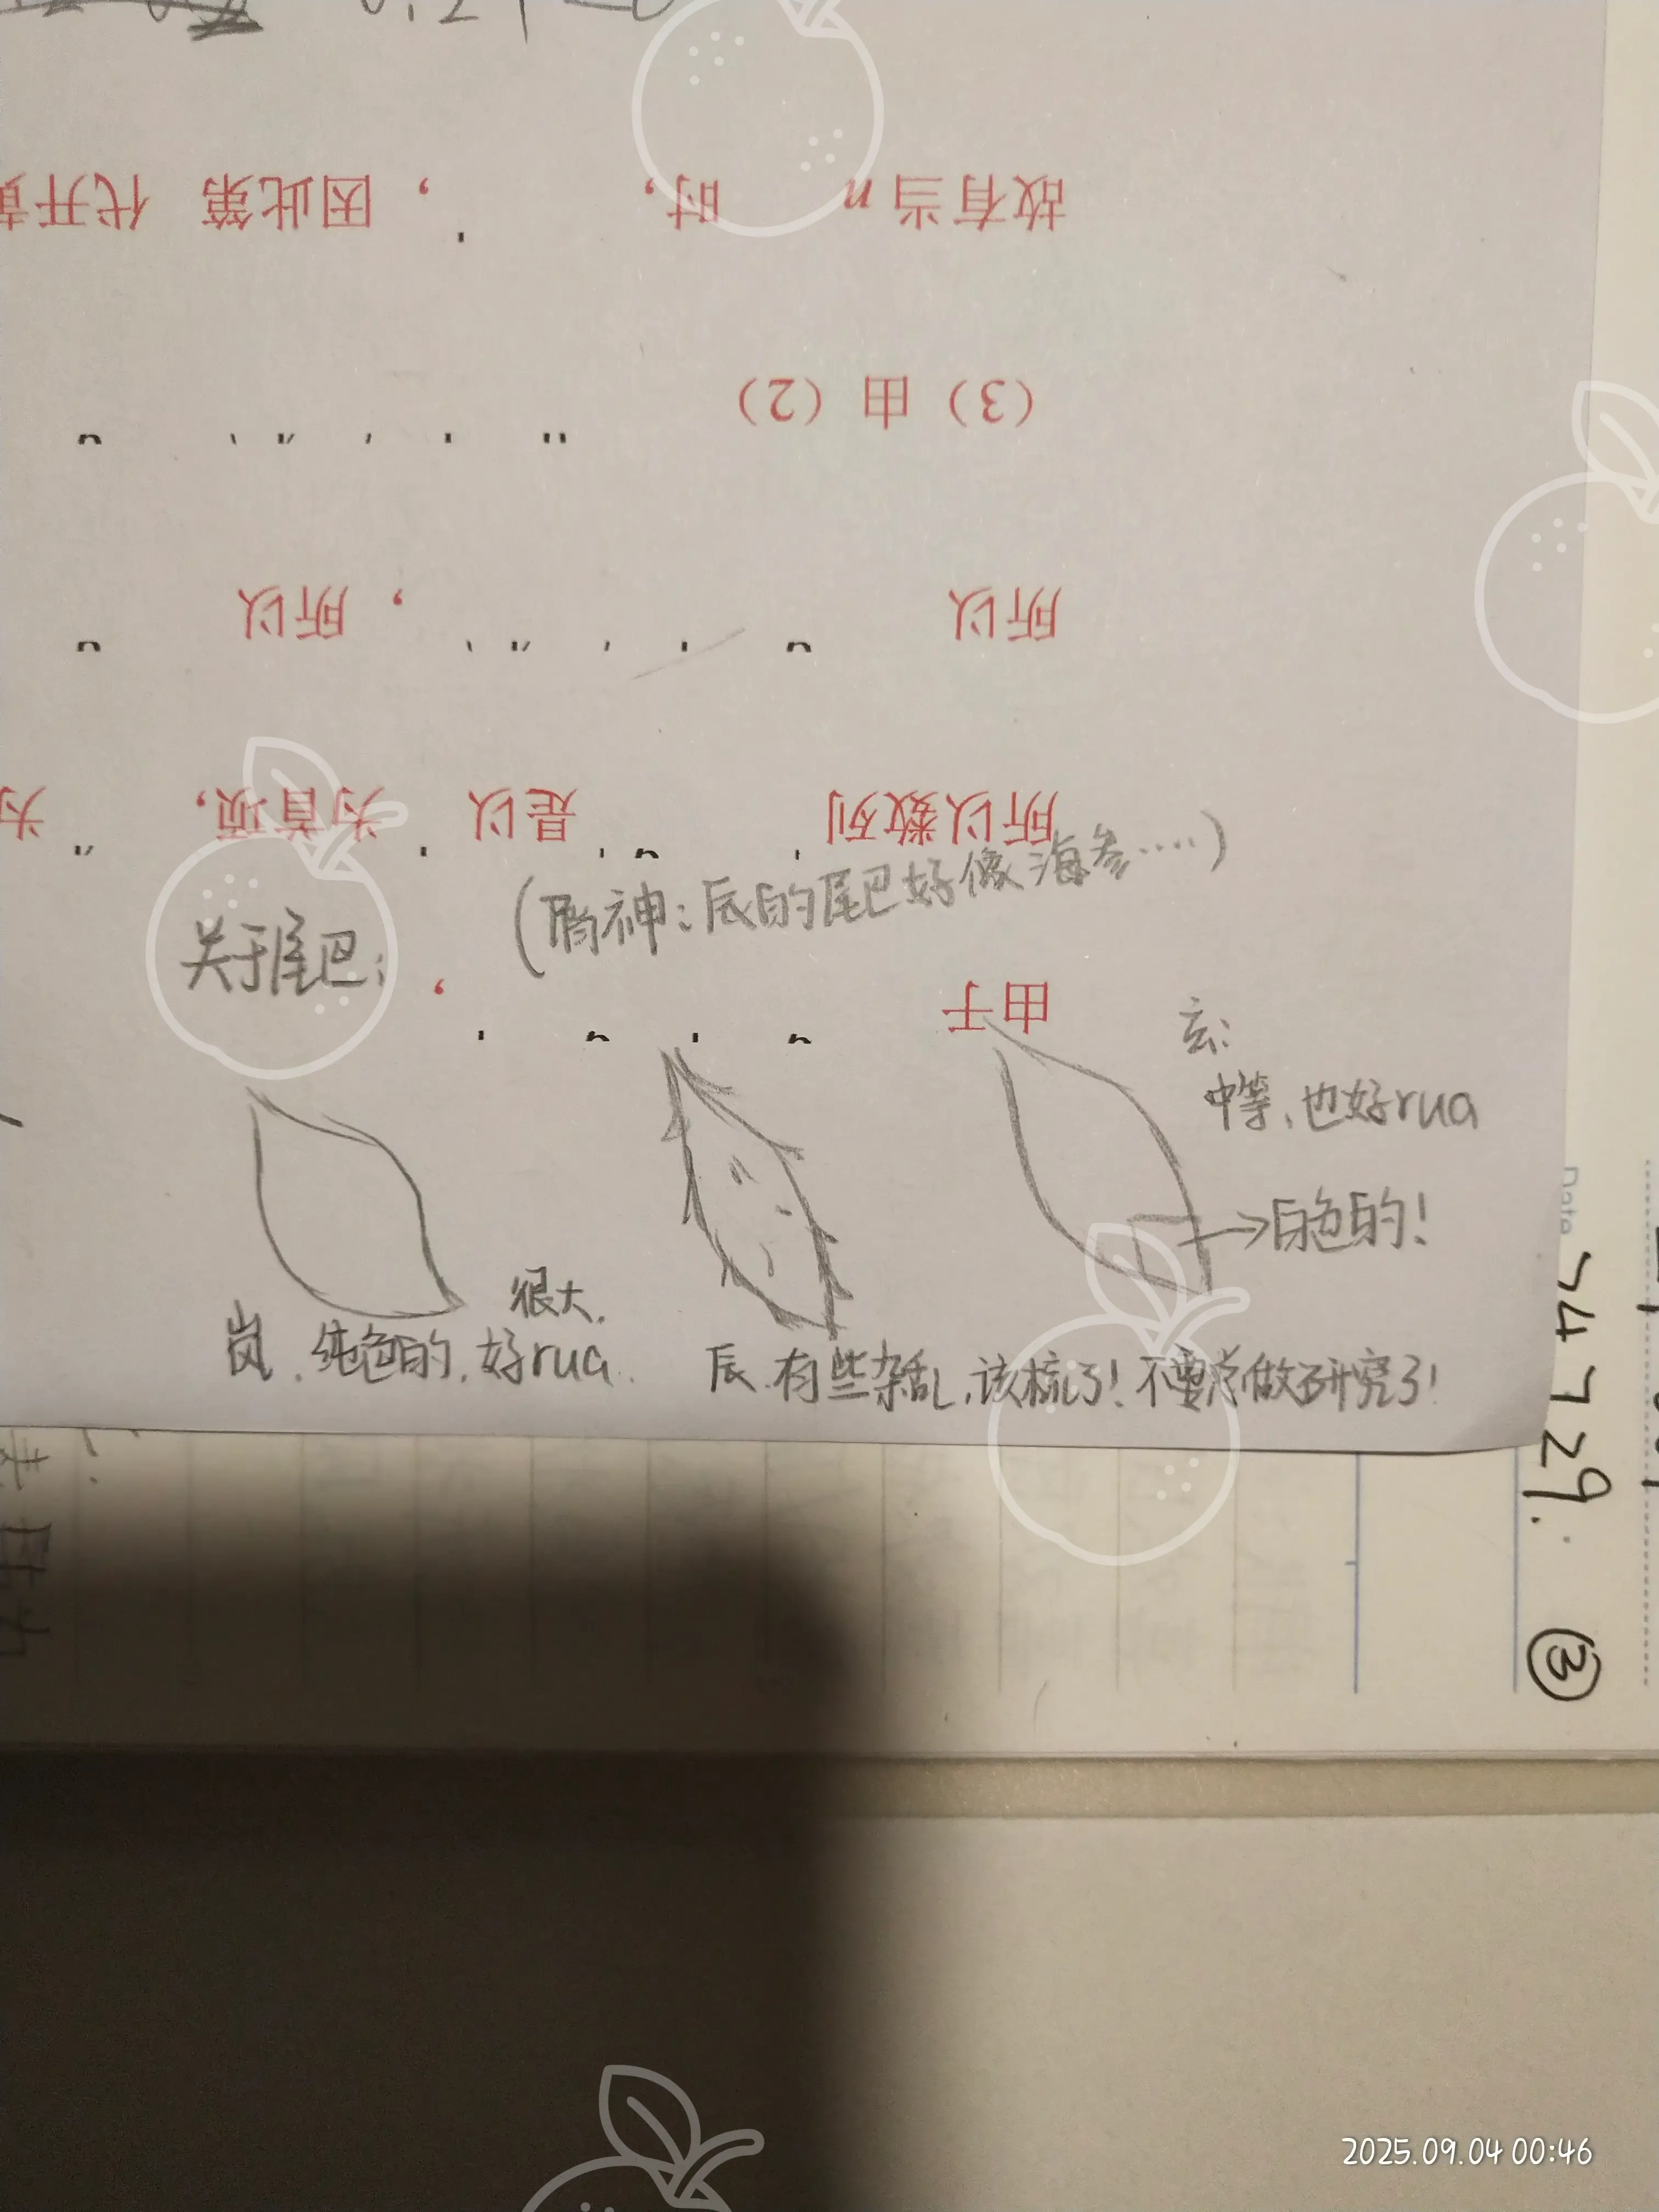 关于尾巴：
（屑神：辰的尾巴好像海参……）
玄：
中等，也好rua
→白色的！
很大，
岚，纯色的，好rua
辰，有些杂乱，该梳了！不要总做研究了！
由于
，
所以数列 是以 为首项， 为
所以 ，所以
（3）由（2）
故有当n 时， ，因此第 代开
74729.
③
Date
2025.09.04 00:46